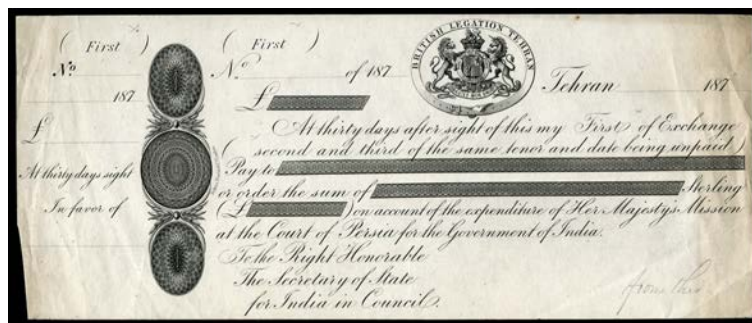 ( First )
Nº
187
£
At thirty days sight
In favor of
( First )
Nº of 187
£
BRITISH LEGATION TEHRAN
Tehran 187
At thirty days after sight of this my First of Exchange
( second and third of the same tenor and date being unpaid )
Pay to
or order the sum of Sterling
(£ ) on account of the expenditure of Her Majesty's Mission
at the Court of Persia for the Government of India.
To the Right Honorable
The Secretary of State
for India in Council.